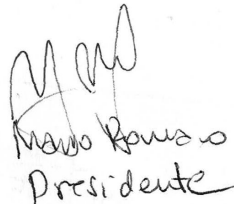 Mario Romano
Presidente